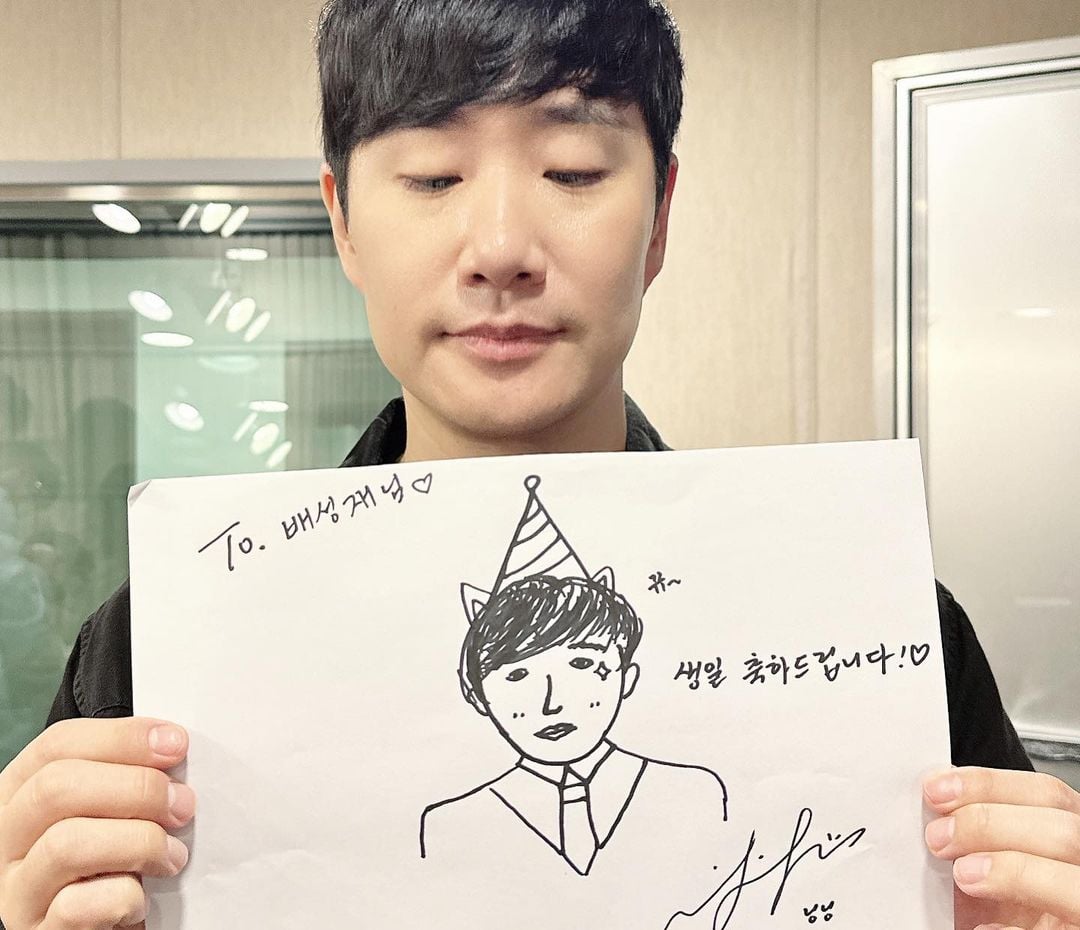 To. 배성재님♡
뀨~
생일 축하드립니다!♡
닝닝